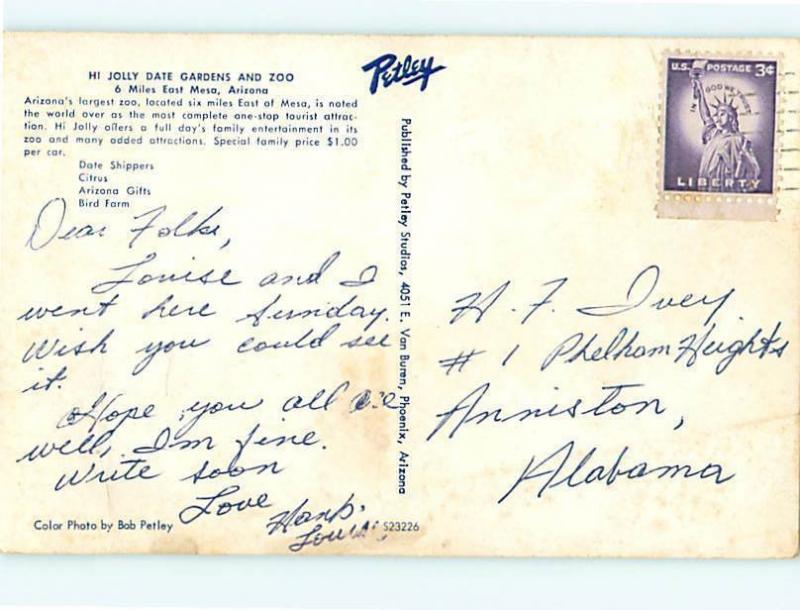 HI JOLLY DATE GARDENS AND ZOO
6 Miles East Mesa, Arizona
Arizona's largest zoo, located six miles East of Mesa, is noted
the world over as the most complete one-stop tourist attrac-
tion. Hi Jolly offers a full day's family entertainment in its
zoo and many added attractions. Special family price $1.00
per car.
Date Shippers
Citrus
Arizona Gifts
Bird Farm
Dear Folks,
Louise and I
went here Sunday.
Wish you could see
it.
Hope you all are
well, I'm fine.
Write soon
Love
Hank.
Louise
Color Photo by Bob Petley
S23226
Petley
Published by Petley Studios, 4051 E. Van Buren, Phoenix, Arizona
U.S. POSTAGE 3¢
IN GOD WE TRUST
LIBERTY
H. F. Ivey
# 1 Phelham Heights
Anniston,
Alabama